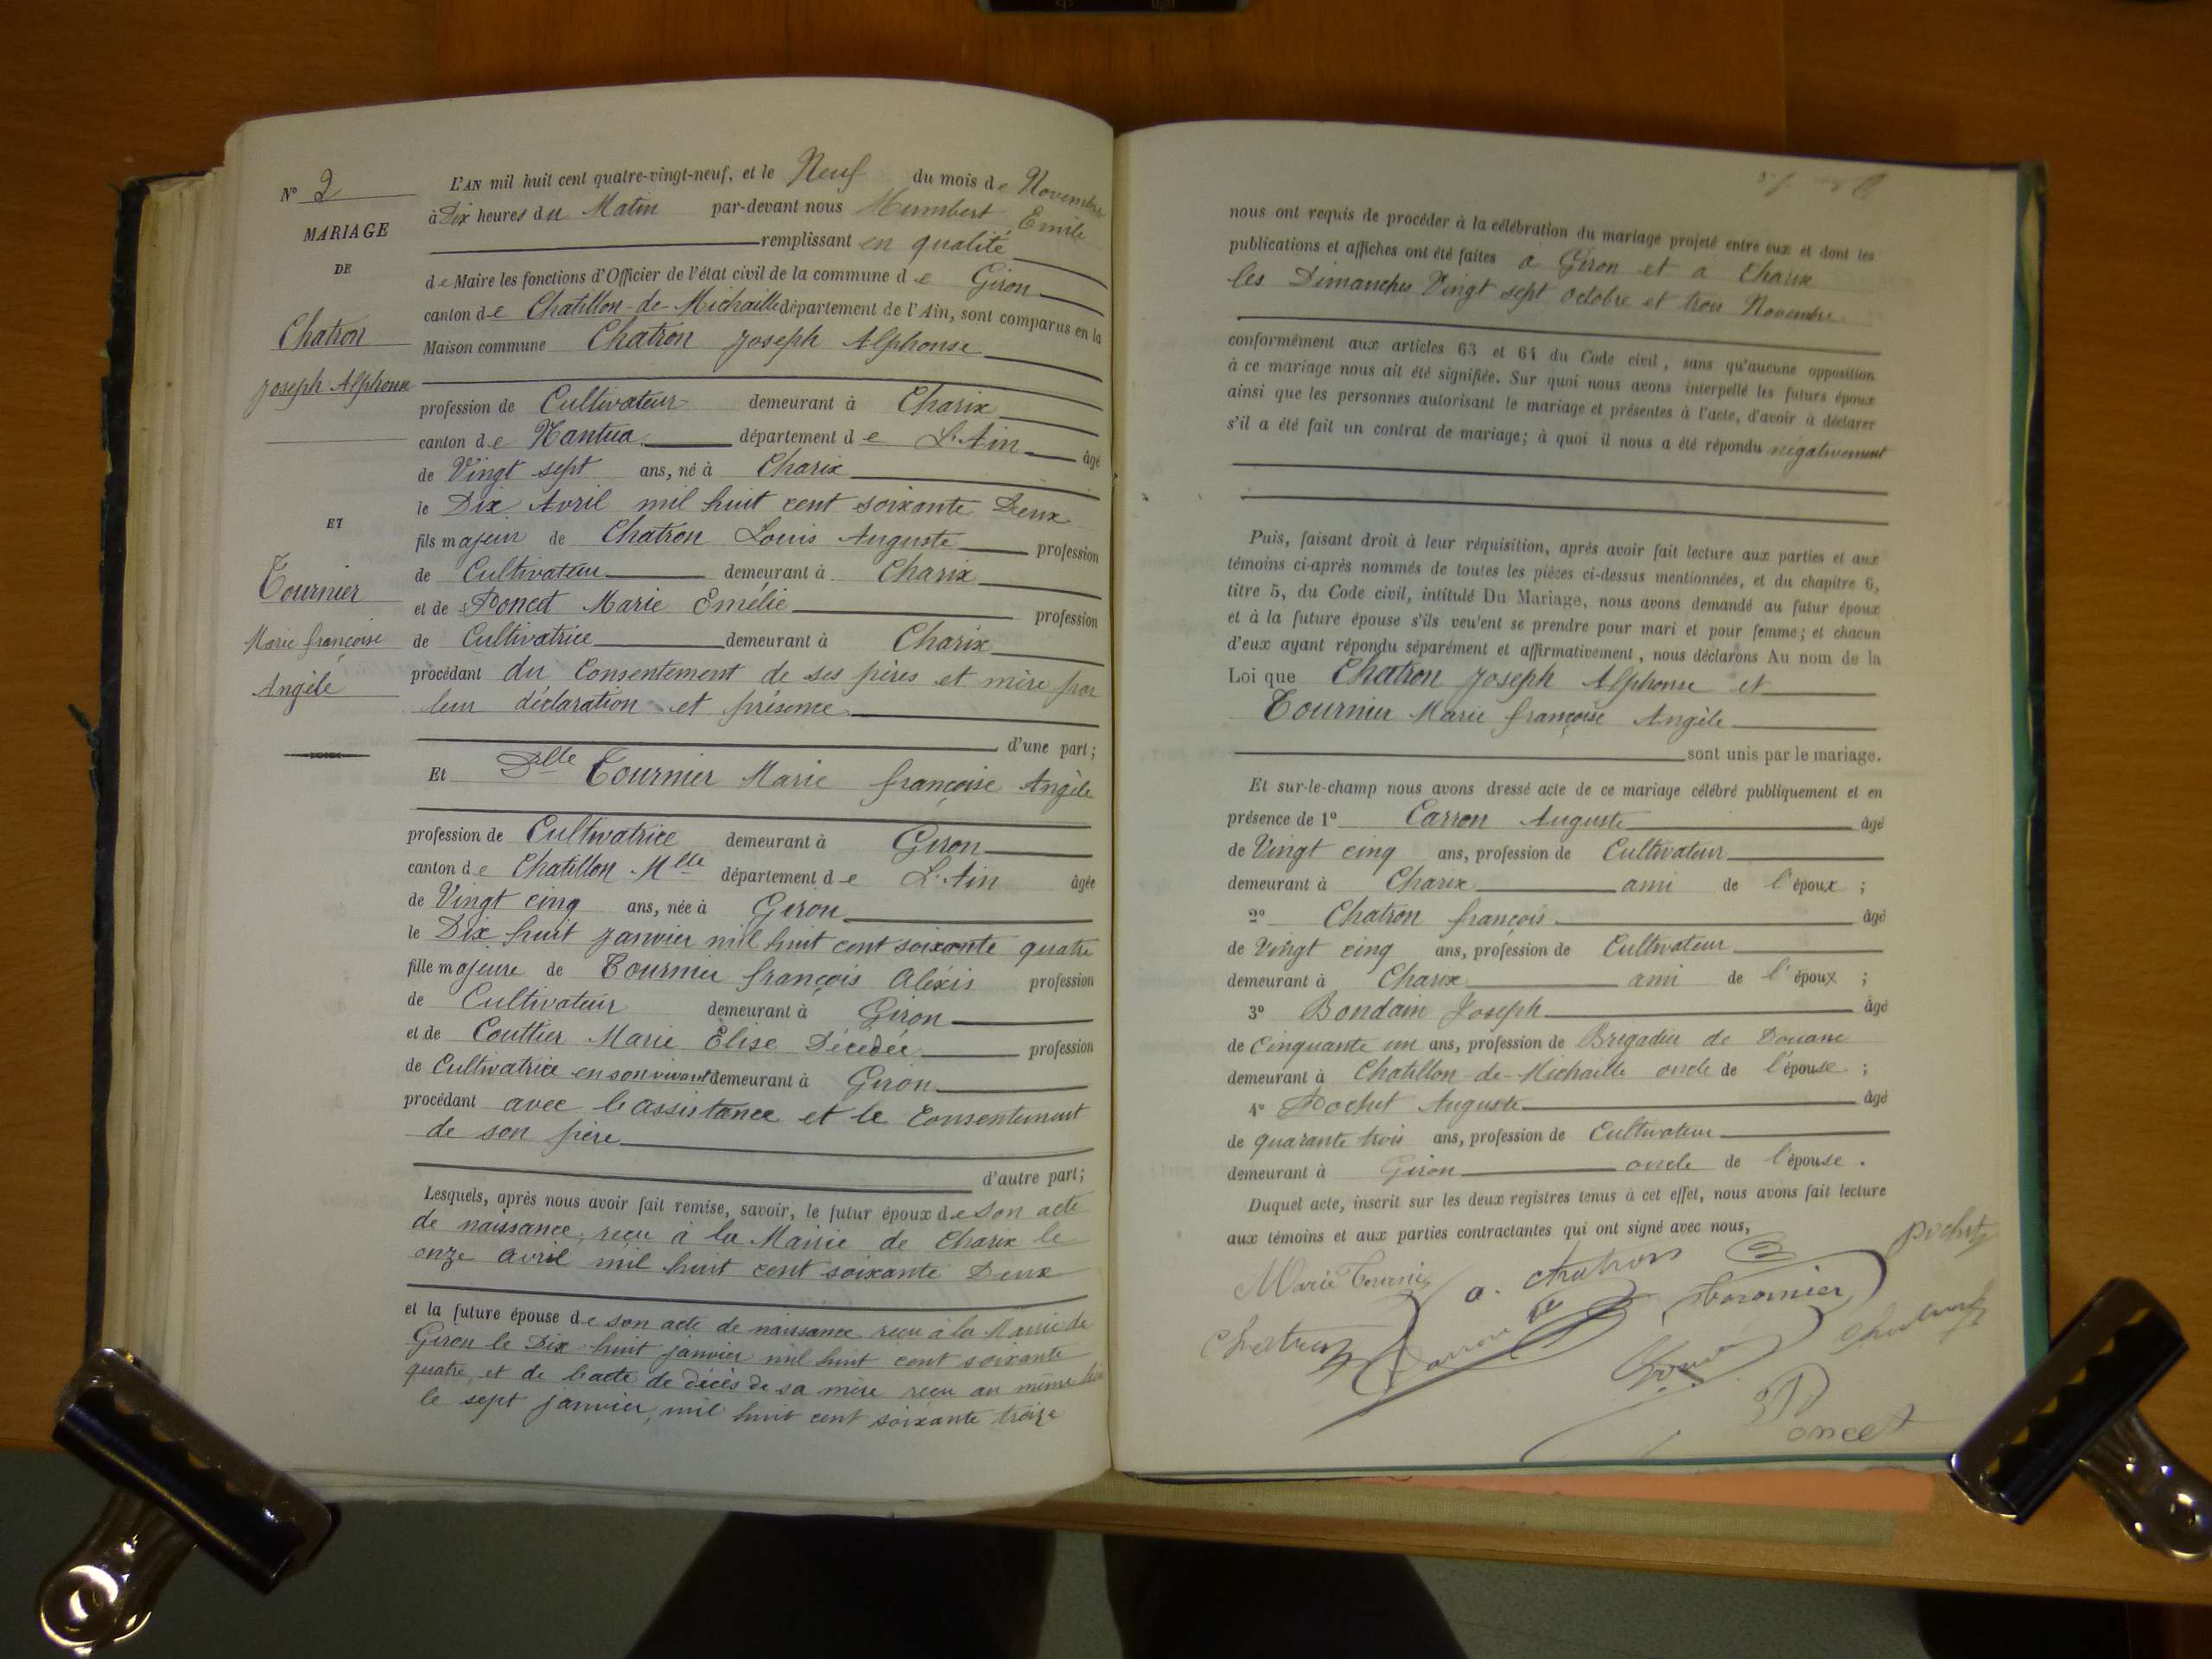 N° 2
MARIAGE
DE
Chatron
Joseph Alphonse
ET
Tournier
Marie françoise
Angèle
L'AN mil huit cent quatre-vingt-neuf, et le Neuf du mois de Novembre
à Dix heures du Matin par-devant nous Humbert Emile
remplissant en qualité
de Maire les fonctions d'Officier de l'état civil de la commune de Giron
canton de Chatillon-de-Michaille département de l'Ain, sont comparus en la
Maison commune Chatron Joseph Alphonse
profession de Cultivateur demeurant à Charix
canton de Nantua département de L'Ain âgé
de Vingt sept ans, né à Charix
le Dix Avril mil huit cent soixante Deux
fils majeur de Chatron Louis Auguste profession
de Cultivateur demeurant à Charix
et de Poncet Marie Emélie profession
de Cultivatrice demeurant à Charix
procédant du Consentement de ses pères et mère par
leur déclaration et présence
d'une part;
Et Dlle Tournier Marie françoise Angèle
profession de Cultivatrice demeurant à Giron
canton de Chatillon Mlle département de L'Ain âgée
de Vingt cinq ans, née à Giron
le Dix huit janvier mil huit cent soixante quatre
fille majeure de Tournier françois Aléxis profession
de Cultivateur demeurant à Giron
et de Couttier Marie Elise Décédée profession
de Cultivatrice en son vivant demeurant à Giron
procédant avec le assistance et le Consentement
de son père
d'autre part;
Lesquels, après nous avoir fait remise, savoir, le futur époux de son acte
de naissance, reçu à la Mairie de Charix le
onze avril mil huit cent soixante Deux
et la future épouse de son acte de naissance reçu à la Mairie de
Giron le Dix huit janvier mil huit cent soixante
quatre, et de l'acte de décès de sa mère reçu au même lieu
le sept janvier, mil huit cent soixante treize
nous ont requis de procéder à la célébration du mariage projeté entre eux et dont les
publications et affiches ont été faites a Giron et a Charix
les Dimanches Vingt sept octobre et trois Novembre
conformément aux articles 63 et 64 du Code civil, sans qu'aucune opposition
à ce mariage nous ait été signifiée. Sur quoi nous avons interpellé les futurs époux
ainsi que les personnes autorisant le mariage et présentes à l'acte, d'avoir à déclarer
s'il a été fait un contrat de mariage; à quoi il nous a été répondu négativement
Puis, faisant droit à leur réquisition, après avoir fait lecture aux parties et aux
témoins ci-après nommés de toutes les pièces ci-dessus mentionnées, et du chapitre 6,
titre 5, du Code civil, intitulé Du Mariage, nous avons demandé au futur époux
et à la future épouse s'ils veu'ent se prendre pour mari et pour femme; et chacun
d'eux ayant répondu séparément et affirmativement, nous déclarons Au nom de la
Loi que Chatron Joseph Alphonse et
Tournier Marie françoise Angèle
sont unis par le mariage.
Et sur-le-champ nous avons dressé acte de ce mariage célébré publiquement et en
présence de 1° Carron Auguste âgé
de Vingt cinq ans, profession de Cultivateur
demeurant à Charix ami de l'époux ;
2° Chatron françois âgé
de Vingt cinq ans, profession de Cultivateur
demeurant à Charix ami de l'époux ;
3° Bondain Joseph âgé
de Cinquante un ans, profession de Brigadier de Douane
demeurant à Chatillon-de-Michaille oncle de l'épouse ;
4° Pochet Auguste âgé
de quarante trois ans, profession de Cultivateur
demeurant à Giron oncle de l'épouse .
Duquel acte, inscrit sur les deux registres tenus à cet effet, nous avons fait lecture
aux témoins et aux parties contractantes qui ont signé avec nous,
Marie Tournier
Poncet